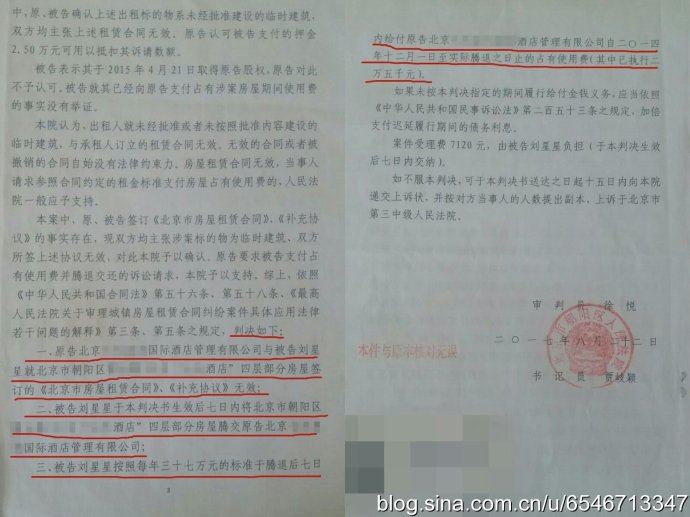 中，原、被告确认上述出租标的物系未经批准建设的临时建筑，
双方均主张上述租赁合同无效。原告认可被告支付的押金
2.50 万元可用以抵扣其诉请数额。
被告表示其于 2015 年 4 月 21 日取得原告股权，原告对此
不予认可。被告就其已经向原告支付占有涉案房屋期间使用费
的事实没有举证。
本院认为，出租人就未经批准或者未按照批准内容建设的
临时建筑，与承租人订立的租赁合同无效。无效的合同或者被
撤销的合同自始没有法律约束力。房屋租赁合同无效，当事人
请求参照合同约定的租金标准支付房屋占有使用费的，人民法
院一般应予支持。
本案中，原、被告签订《北京市房屋租赁合同》、《补充协
议》的事实存在，现双方均主张涉案标的物为临时建筑，双方
所签上述协议无效，对此本院予以确认。原告要求被告支付占
有使用费并腾退交还的诉讼请求，本院予以支持。综上，依照
《中华人民共和国合同法》第五十六条、第五十八条、《最高
人民法院关于审理城镇房屋租赁合同纠纷案件具体应用法律
若干问题的解释》第三条、第五条之规定，判决如下：
一、原告北京 国际酒店管理有限公司与被告刘星
星就北京市朝阳区 酒店”四层部分房屋签
订的《北京市房屋租赁合同》、《补充协议》无效；
二、被告刘星星于本判决书生效后七日内将北京市朝阳区
酒店”四层部分房屋腾交原告北京
国际酒店管理有限公司；
三、被告刘星星按照每年三十七万元的标准于腾退后七日
3
内给付原告北京 酒店管理有限公司自二〇一四
年十二月一日至实际腾退之日止的占有使用费（其中已执行二
万五千元）。
如果未按本判决指定的期间履行给付金钱义务，应当依照
《中华人民共和国民事诉讼法》第二百五十三条之规定，加倍
支付迟延履行期间的债务利息。
案件受理费 7120 元，由被告刘星星负担（于本判决生效
后七日内交纳）。
如不服本判决，可于本判决书送达之日起十五日内向本院
递交上诉状，并按对方当事人的人数提出副本，上诉于北京市
第三中级人民法院。
审 判 员 徐 悦
二〇一七年八月二十二日
本件与原本核对无误
书 记 员 贾岐颖
blog.sina.com.cn/u/6546713347